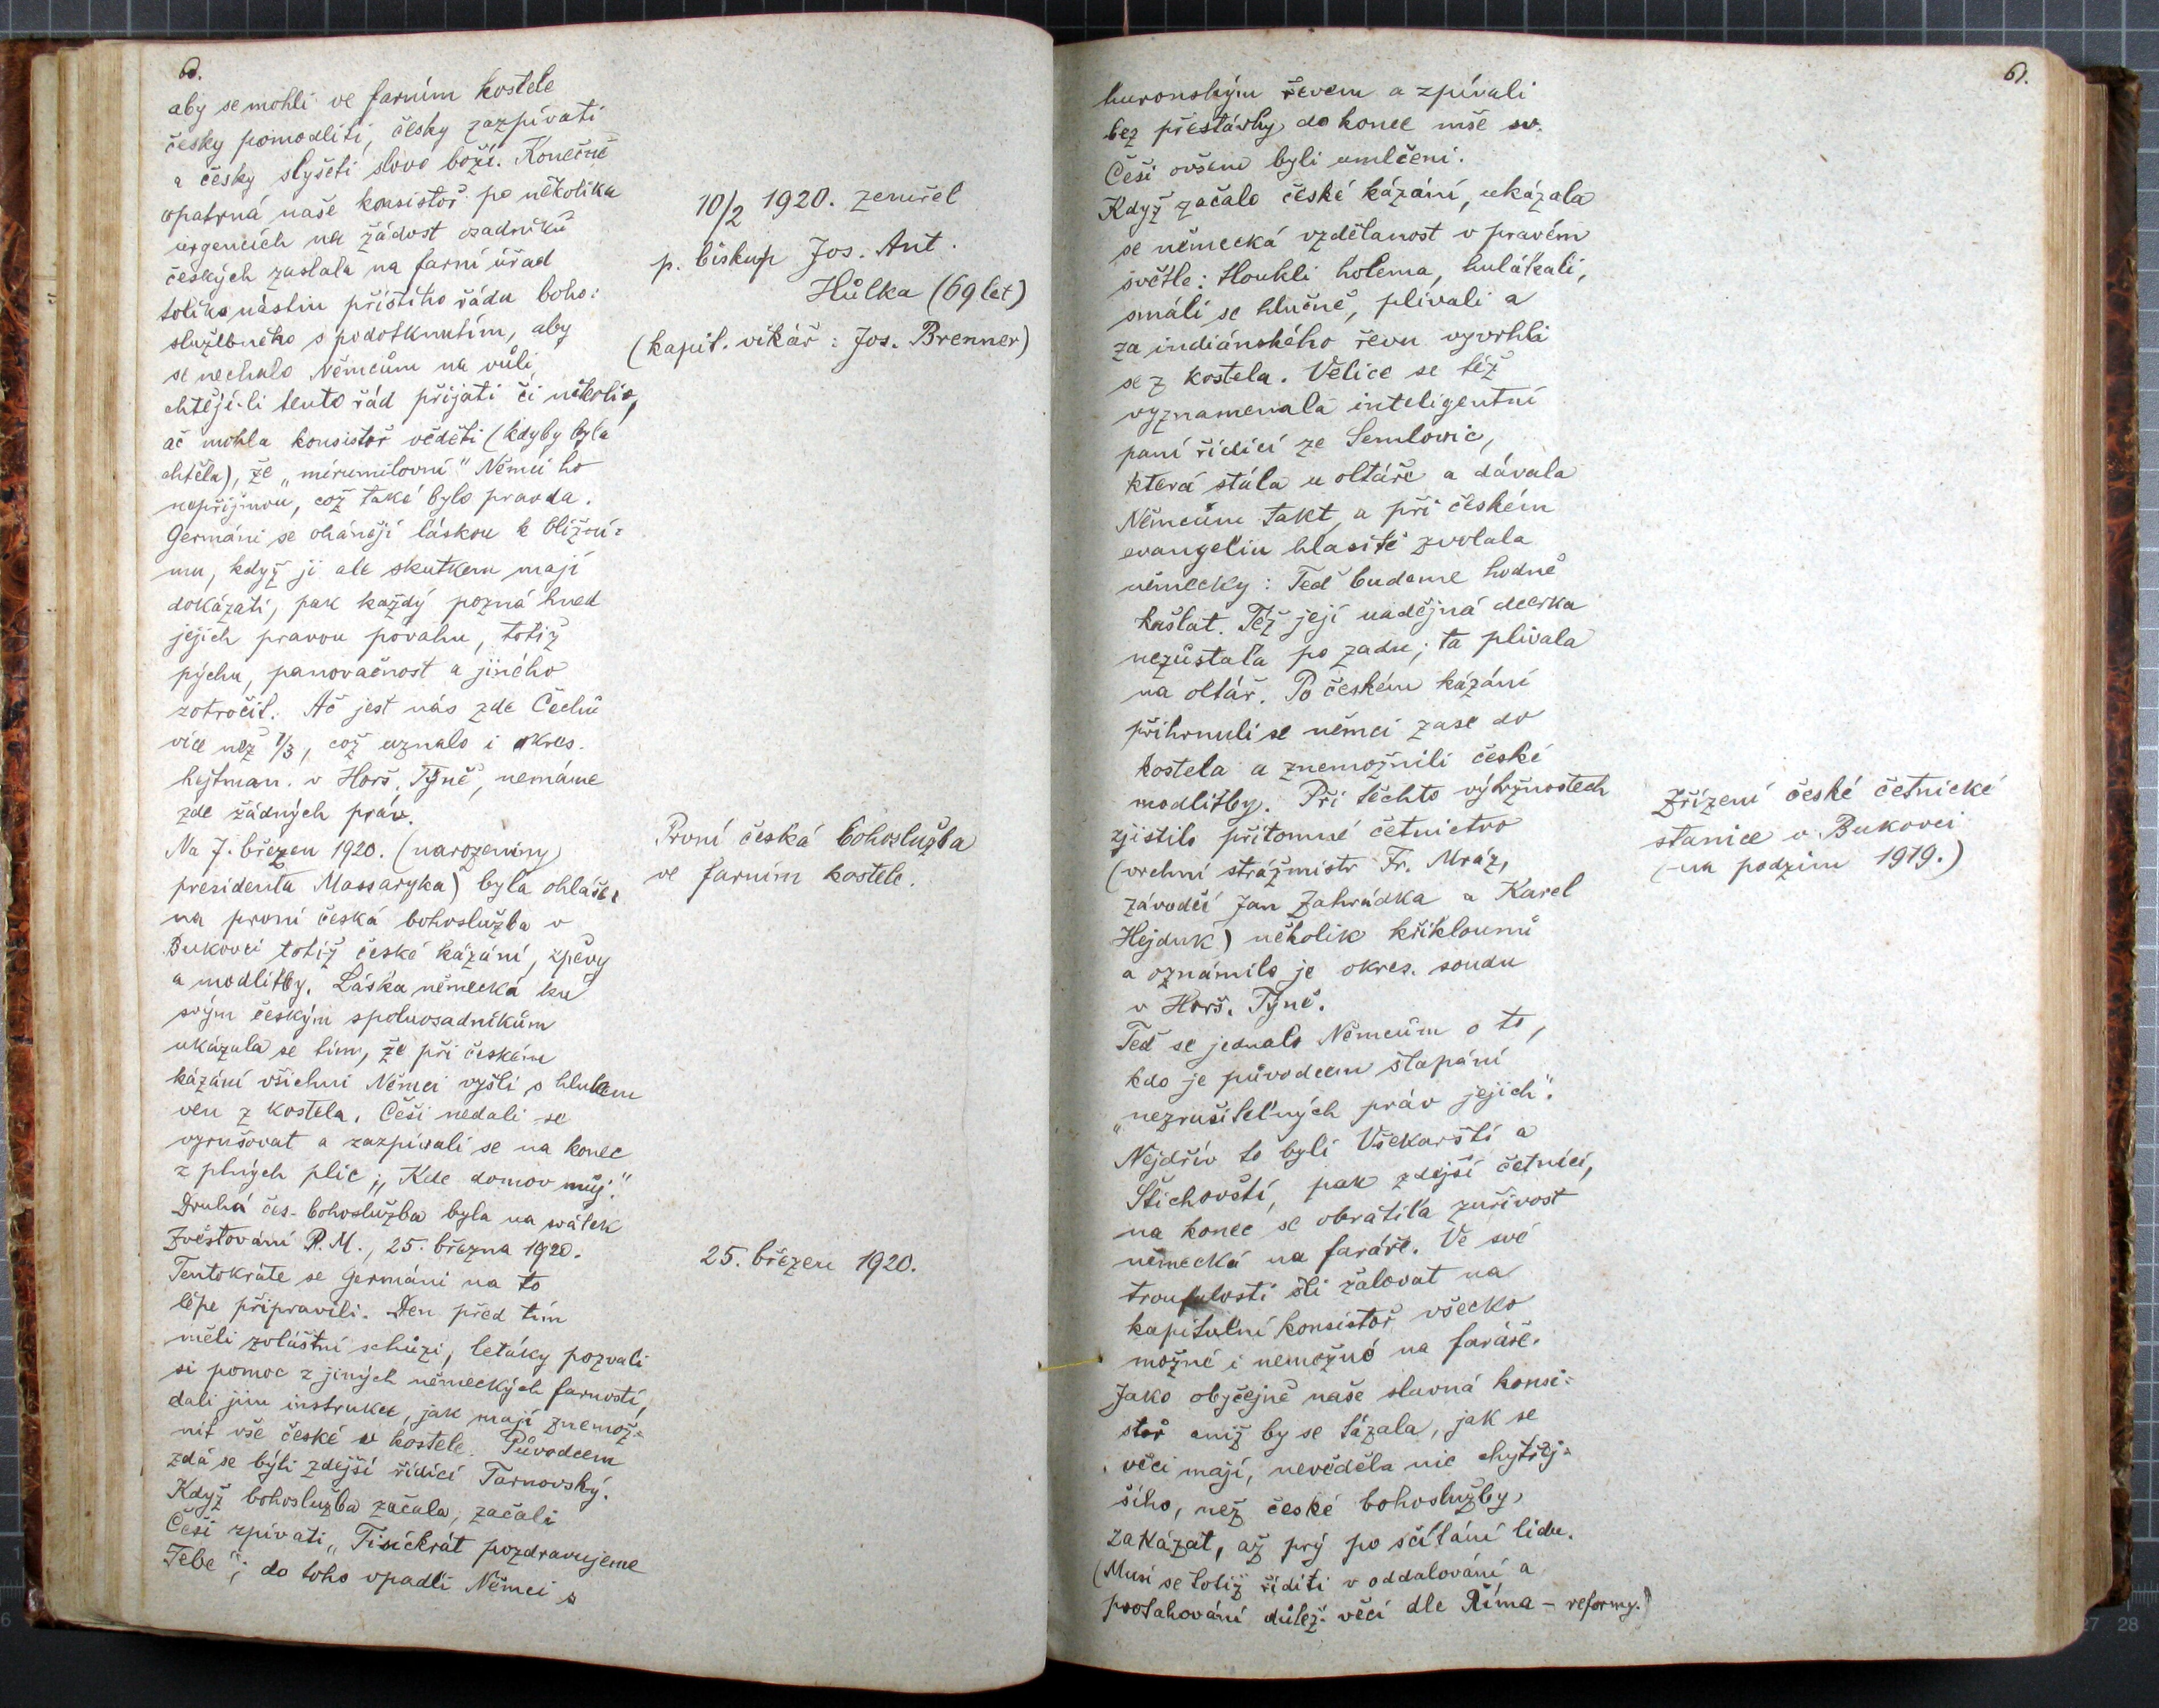 60.
aby se mohli ve farním kostele
česky pomodliti, česky zazpívati
a česky slyšeti slovo boží. Konečně
opatrná naše konsistoř po několika
urgencích na žádost osadníků
českých zaslala na farní úřad
toliko nástin příštího řádu boho=
služebného s podotknutím, aby
se nechalo Němcům na vůli,
chtějí-li tento řád přijati či nikoliv,
ač mohla konsistoř věděti (kdyby byla
chtěla), že „mírumilovní" Němci ho
nepřijmou, což také bylo pravda.
Germáni se ohánějí láskou k bližní=
mu, když ji ale skutkem mají
dokázati, pak každý pozná hned
jejich pravou povahu, totiž
pýchu, panovačnost a jiného
zotročit. Ač jest nás zde Čechů
více než 1/3, což uznalo i okres.
hejtman. v Horš. Týně, nemáme
zde žádných práv.
Na 7. březen 1920. (narozeniny
presidenta Massaryka) byla ohláše=
na první česká bohoslužba v
Bukovci totiž české kázání, zpěvy
a modlitby. Láska německá ku
svým českým spoluosadníkům
ukázala se tím, že při českém
kázání všichni Němci vyšli s hlukem
ven z kostela. Češi nedali se
vyrušovat a zazpívali se na konec
z plných plic „Kde domov můj."
Druhá čes. bohoslužba byla na svátek
Zvěstování P. M., 25. března 1920.
Tentokráte se Germáni na to
lépe připravili. Den před tím
měli zvláštní schůzi, letáky pozvali
si pomoc z jiných německých farností,
dali jim instrukce, jak mají znemož=
nit vše české v kostele. Původcem
zdá se býti zdejší řídící Tarnovský.
Když bohoslužba začala, začali
Češi zpívati „Tisíckrát pozdravujeme
Tebe"; do toho vpadli Němci s
10/2 1920. zemřel
p. biskup Jos. Ant.
Hůlka (69 let)
(kapit. vikář: Jos. Brenner)
První česká bohoslužba
ve farním kostele.
25. březen 1920.
61.
huronským řevem a zpívali
bez přestávky do konce mše sv.
Češi ovšem byli umlčeni.
Když začalo české kázání, ukázala
se německá vzdělanost v pravém
světle: tloukli holema, hulákali,
smáli se hlučně, plivali a
za indiánského řevu vyvrhli
se z kostela. Velice se též
vyznamenala inteligentní
paní řídící ze Semlovic,
která stála u oltáře a dávala
Němcům takt, a při českém
evangeliu hlasitě zvolala
německy: Teď budeme hodně
kašlat. Též její nadějná dcerka
nezůstala po zadu; ta plivala
na oltář. Po českém kázání
přihrnuli se němci zase do
kostela a znemožnili české
modlitby. Při těchto výtržnostech
zjistilo přítomné četnictvo
(vrchní strážmistr Fr. Mráz,
závodčí Jan Zahrádka a Karel
Hejduk) několik křiklounů
a oznámilo je okres. soudu
v Horš. Týně.
Teď se jednalo Němcům o to,
kdo je původcem šlapání
„nezrušitelných práv jejich".
Nejdřív to byli Všekarští a
Štichovští, pak zdejší četníci,
na konec se obrátila zuřivost
německá na faráře. Ve své
troufalosti šli žalovat na
kapitulní konsistoř všecko
možné i nemožné na faráře.
Jako obyčejně naše slavná konsi=
stoř aniž by se tázala, jak se
věci mají, nevěděla nic chytřej=
šího, než české bohoslužby
zakázat, až prý po sčítání lidu.
(Musí se totiž říditi v oddalování a
protahování důlež. věcí dle Říma – reformy.)
Zřízení české četnické
stanice v Bukovci
(na podzim 1919.)